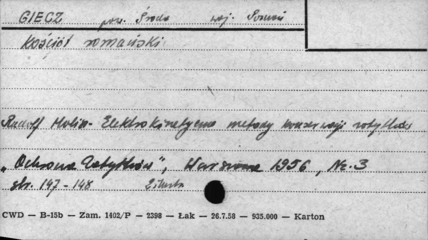 GIECZ pow. Środa woj. Poznań
Kościół romański
Rudolf Molin - Elektrokinetyczne metody konserwacji zabytków
„Ochrona Zabytków", Warszawa 1956, Nr. 3
str. 147-148 2 ilustr.
CWD — B-15b — Zam. 1402/P — 2398 — Łak — 26.7.58 — 935.000 — Karton